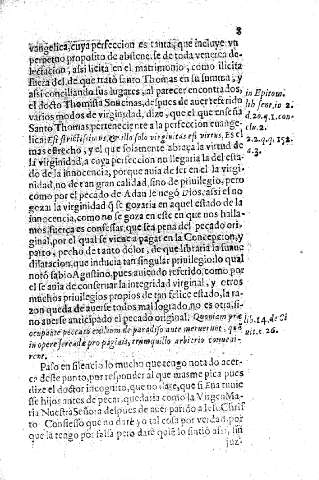 8
vangelica, cuya perfeccion es tanta, que incluye vn
perpetuo proposito de abstenerse de toda venerea de-
lectacion, assi licita en el matrimonio, como ilicita
fuera del. de que trató santo Thomas en su summa, y
assi conciliando sus lugares, al parecer encontrados,
el docto Thomista Soncinas, despues de auer referido
varios modos de virginidad, dize, que el que enseña
Santo Thomas perteneciente a la perfeccion euange-
lica: Est strictissimus, & illo solo virginitas est virtus. Es el
mas estrecho, y el que solamente abraça la virtud de
la virginidad, a cuya perfeccion no llegaria la del esta-
do de la innocencia, porque auia de ser en el la virgi-
nidad, no de tan gran calidad, sino de priuilegio, pero
como por el pecado de Adan le negó Dios, assi el no
gozar la virginidad q̃ se gozaria en aquel estado de la
innocencia, como no se goza en este en que nos halla-
mos, fuerça es confessar, que sea pena del pecado ori-
ginal, por el qual se viene a pagar en la Concepcion, y
parto, pecho de tanto dolor, de que libraria la summa
dilatacion, que inducia tan singular priuilegio: lo qual
notó sabio Agustino, pues auiendo referido, como por
el se auia de conseruar la integridad virginal, y otros
muchos priuilegios propios de tan felice estado, la ra-
zon queda de auerse todos mal logrado, no es otra, si-
no auerse anticipado el pecado original. Quoniam præ
ocupante peccato exilium de paradiso ante meruerunt, quã
in opere serendæ propaginis, tranquillo arbitrio conueni-
rent.
Passo en silencio lo mucho que tengo notado acer-
ca deste punto, por responder al que mas me pica pues
dize el doctor incognito, que no sabe, que si Eua tuuie
se hijos antes de pecar, quedaria como la Virgen Ma-
ria Nuestra Señora despues de auer parido a Iesu Chris
to Confiesso que no daré yo tal cosa por verdad, por
que la tengo por falsa pero daré quiẽ lo sintió assi, sin
juz-
in Epitom.
lib sent, in 2.
d. 20. q. 1. con-
clu. 2.
2. 2. q. q. 152.
a. 3.
lib. 14. de Ci
uit. c. 26.